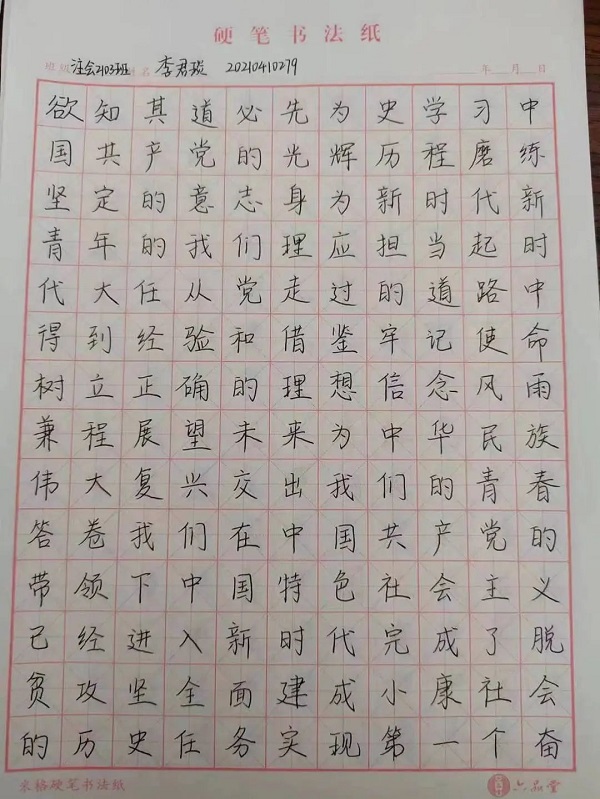 硬笔书法纸
班级 注会2103班 姓名 李君璇 20210410279 年 月 日
欲知其道必先为史学习中
国共产党的光辉历程磨练
坚定的意志身为新时代新
青年的我们理应担当起时
代大任从党走过的道路中
得到经验和借鉴牢记使命
树立正确的理想信念风雨
兼程展望未来为中华民族
伟大复兴交出我们的青春
答卷我们在中国共产党的
带领下中国特色社会主义
已经进入新时代完成了脱
贫攻坚全面建成小康社会
的历史任务实现第一个奋
米格硬笔书法纸 六品堂